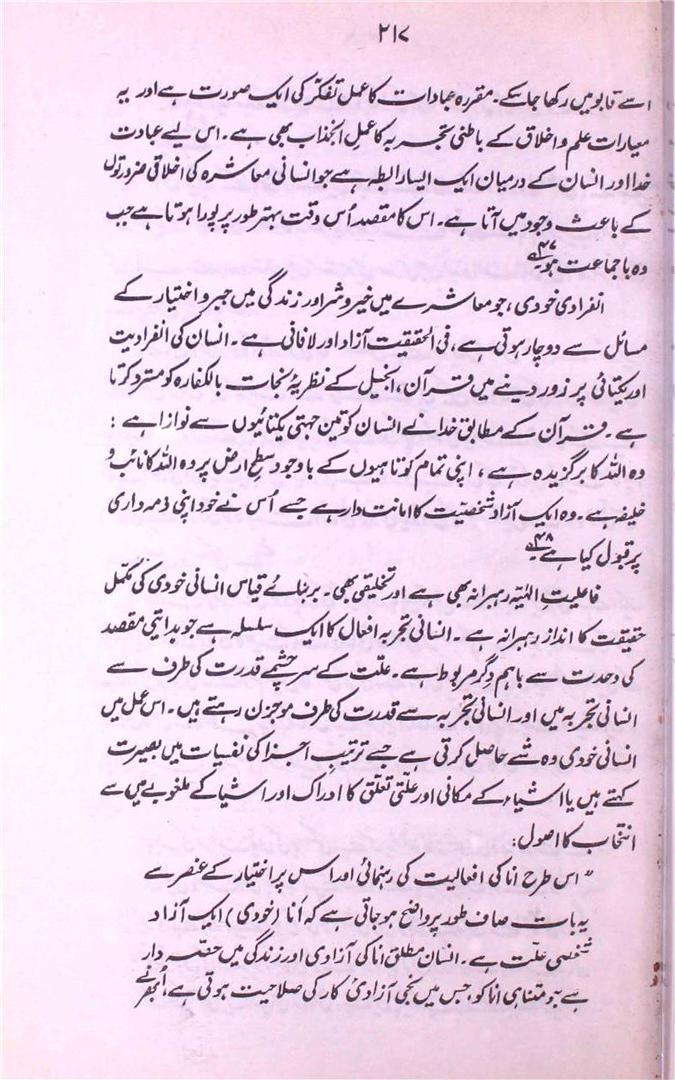 ۲۱۷
اسے قابو میں رکھا جا سکے۔ مقررہ عبادات کا عمل تفکّر کی ایک صورت ہے اور یہ
معیارات علم و اخلاق کے باطنی تجربہ کا عملِ انجذاب بھی ہے۔ اس لیے عبادت
خدا اور انسان کے درمیان ایک ایسا رابطہ ہے جو انسانی معاشرہ کی اخلاقی ضرورتوں
کے باعث وجود میں آتا ہے۔ اس کا مقصد اُس وقت بہتر طور پر پورا ہوتا ہے جب
وہ باجماعت ہو۔۴۷
انفرادی خودی، جو معاشرے میں خیر و شر اور زندگی میں جبر و اختیار کے
مسائل سے دوچار ہوتی ہے، فی الحقیقت آزاد اور لافانی ہے۔ انسان کی انفرادیت
اور یکتائی پر زور دینے میں قرآن، انجیل کے نظریۂ نجات بالکفارہ کو مسترد کرتا
ہے۔ قرآن کے مطابق خدا نے انسان کو تین جہتی یکتائیوں سے نوازا ہے :
وہ اللہ کا برگزیدہ ہے، اپنی تمام کوتاہیوں کے باوجود سطحِ ارض پر وہ اللہ کا نائب و
خلیفہ ہے۔ وہ ایک آزاد شخصیّت کا امانت دار ہے جسے اُس نے خود اپنی ذمہ داری
پر قبول کیا ہے۔۴۸
فاعلیتِ الٰہیّہ رہبرانہ بھی ہے اور تخلیقی بھی۔ بربنائے قیاس انسانی خودی کی مکمّل
حقیقت کا انداز رہبرانہ ہے۔ انسانی تجربہ افعال کا ایک سلسلہ ہے جو ہدایتی مقصد
کی وحدت سے باہم دِگر مربوط ہے۔ علّت کے سرچشمے قدرت کی طرف سے
انسانی تجربہ میں اور انسانی تجربہ سے قدرت کی طرف موجزن رہتے ہیں۔ اس عمل میں
انسانی خودی وہ شے حاصل کرتی ہے جسے ترتیبِ اجزا کی نفسیات میں بصیرت
کہتے ہیں یا اشیاء کے مکانی اور علّتی تعلّق کا ادراک اور اشیا کے ملغوبے میں سے
انتخاب کا اصول:
”اس طرح انا کی افعالیت کی رہنمائی اور اس پر اختیار کے عنصر سے
یہ بات صاف طور پر واضح ہو جاتی ہے کہ اَنا (خودی) ایک آزاد
شخصی علّت ہے۔ انسان مطلق انا کی آزادی اور زندگی میں حصّہ دار
ہے جو متناہی انا کو جس میں نجی آزادیٔ کار کی صلاحیت ہوتی ہے، اُبھرنے